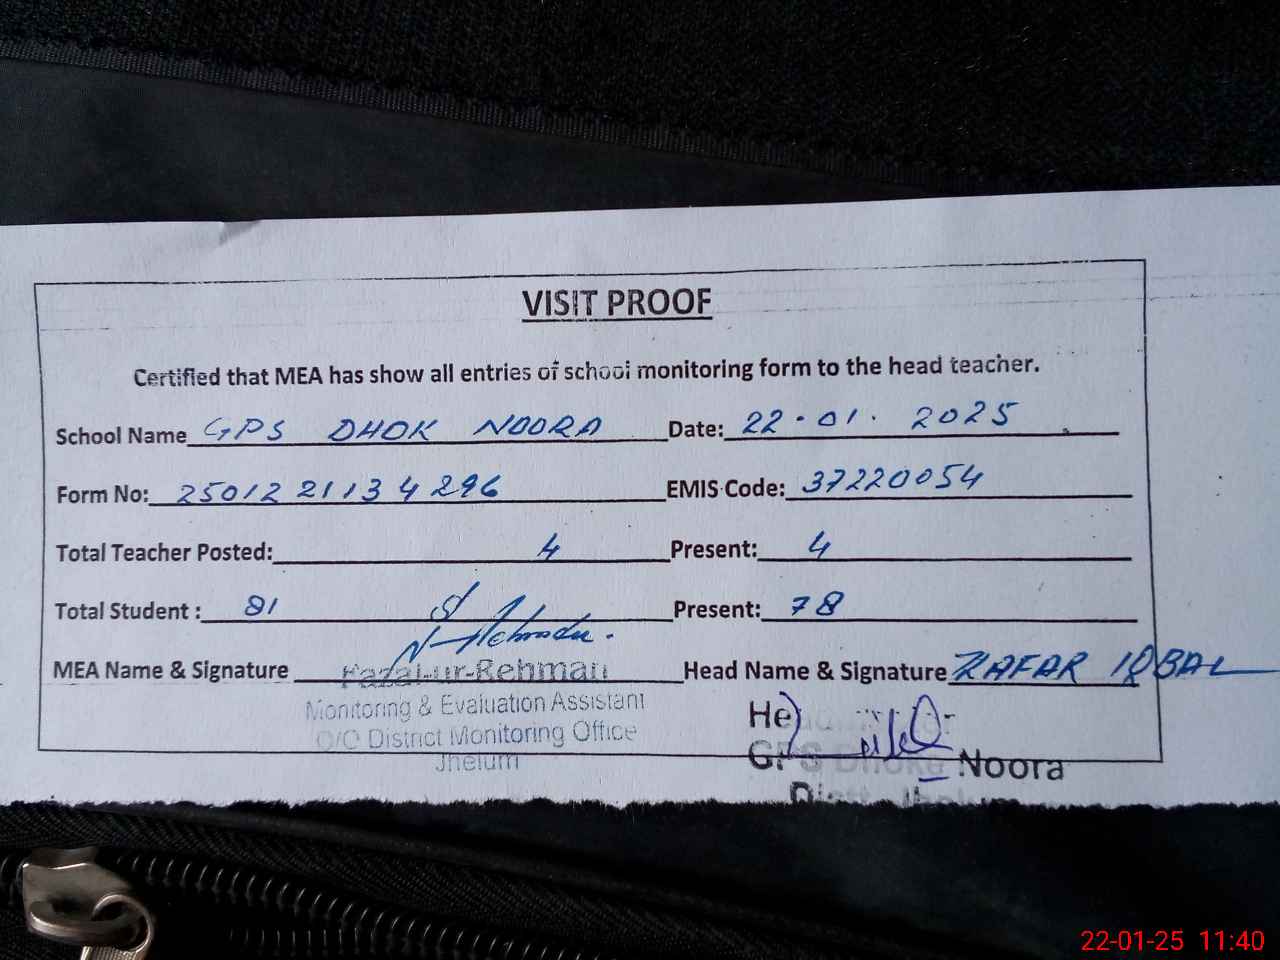 VISIT PROOF
Certified that MEA has show all entries of school monitoring form to the head teacher.
School Name GPS DHOK NOORA Date: 22.01.2025
Form No: 25012 21134296 EMIS Code: 37220054
Total Teacher Posted: 4 Present: 4
Total Student : 81 Present: 78
MEA Name & Signature Fazal-ur-Rehman Head Name & Signature ZAFAR IQBAL
Monitoring & Evaluation Assistant
O/O District Monitoring Office
Jhelum
GPS Dhoke Noora
22-01-25 11:40